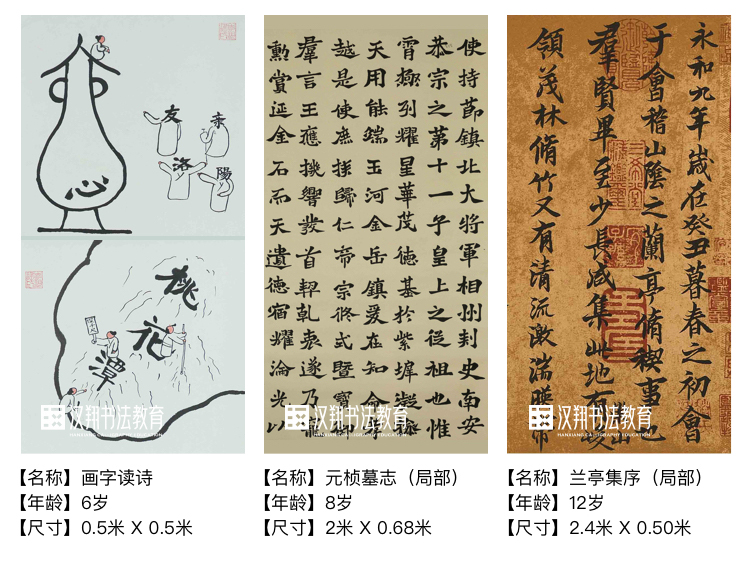 心
友
亲
洛
陽
桃
花
潭
汉翔书法教育
HANXIANG CALLIGRAPHY EDUCATION
【名称】画字读诗
【年龄】6岁
【尺寸】0.5米 X 0.5米
使持節鎮北大將軍相州刾史南安
恭宗之第十一子皇上之從祖也惟
霄極列耀星華茂德基於紫墀凝
天用能端玉河金岳鎮爰在知命
越是使庶族歸仁帝宗攸式暨寶
羣言王應機響發首契乾衷遂乃寵
勳賞延金石而天遺德宿耀淪光以
汉翔书法教育
HANXIANG CALLIGRAPHY EDUCATION
【名称】元桢墓志（局部）
【年龄】8岁
【尺寸】2米 X 0.68米
永和九年歲在癸丑暮春之初會
于會稽山陰之蘭亭脩禊事也
羣賢畢至少長咸集此地有
領茂林脩竹又有清流激湍暎帶
汉翔书法教育
HANXIANG CALLIGRAPHY EDUCATION
【名称】兰亭集序（局部）
【年龄】12岁
【尺寸】2.4米 X 0.50米